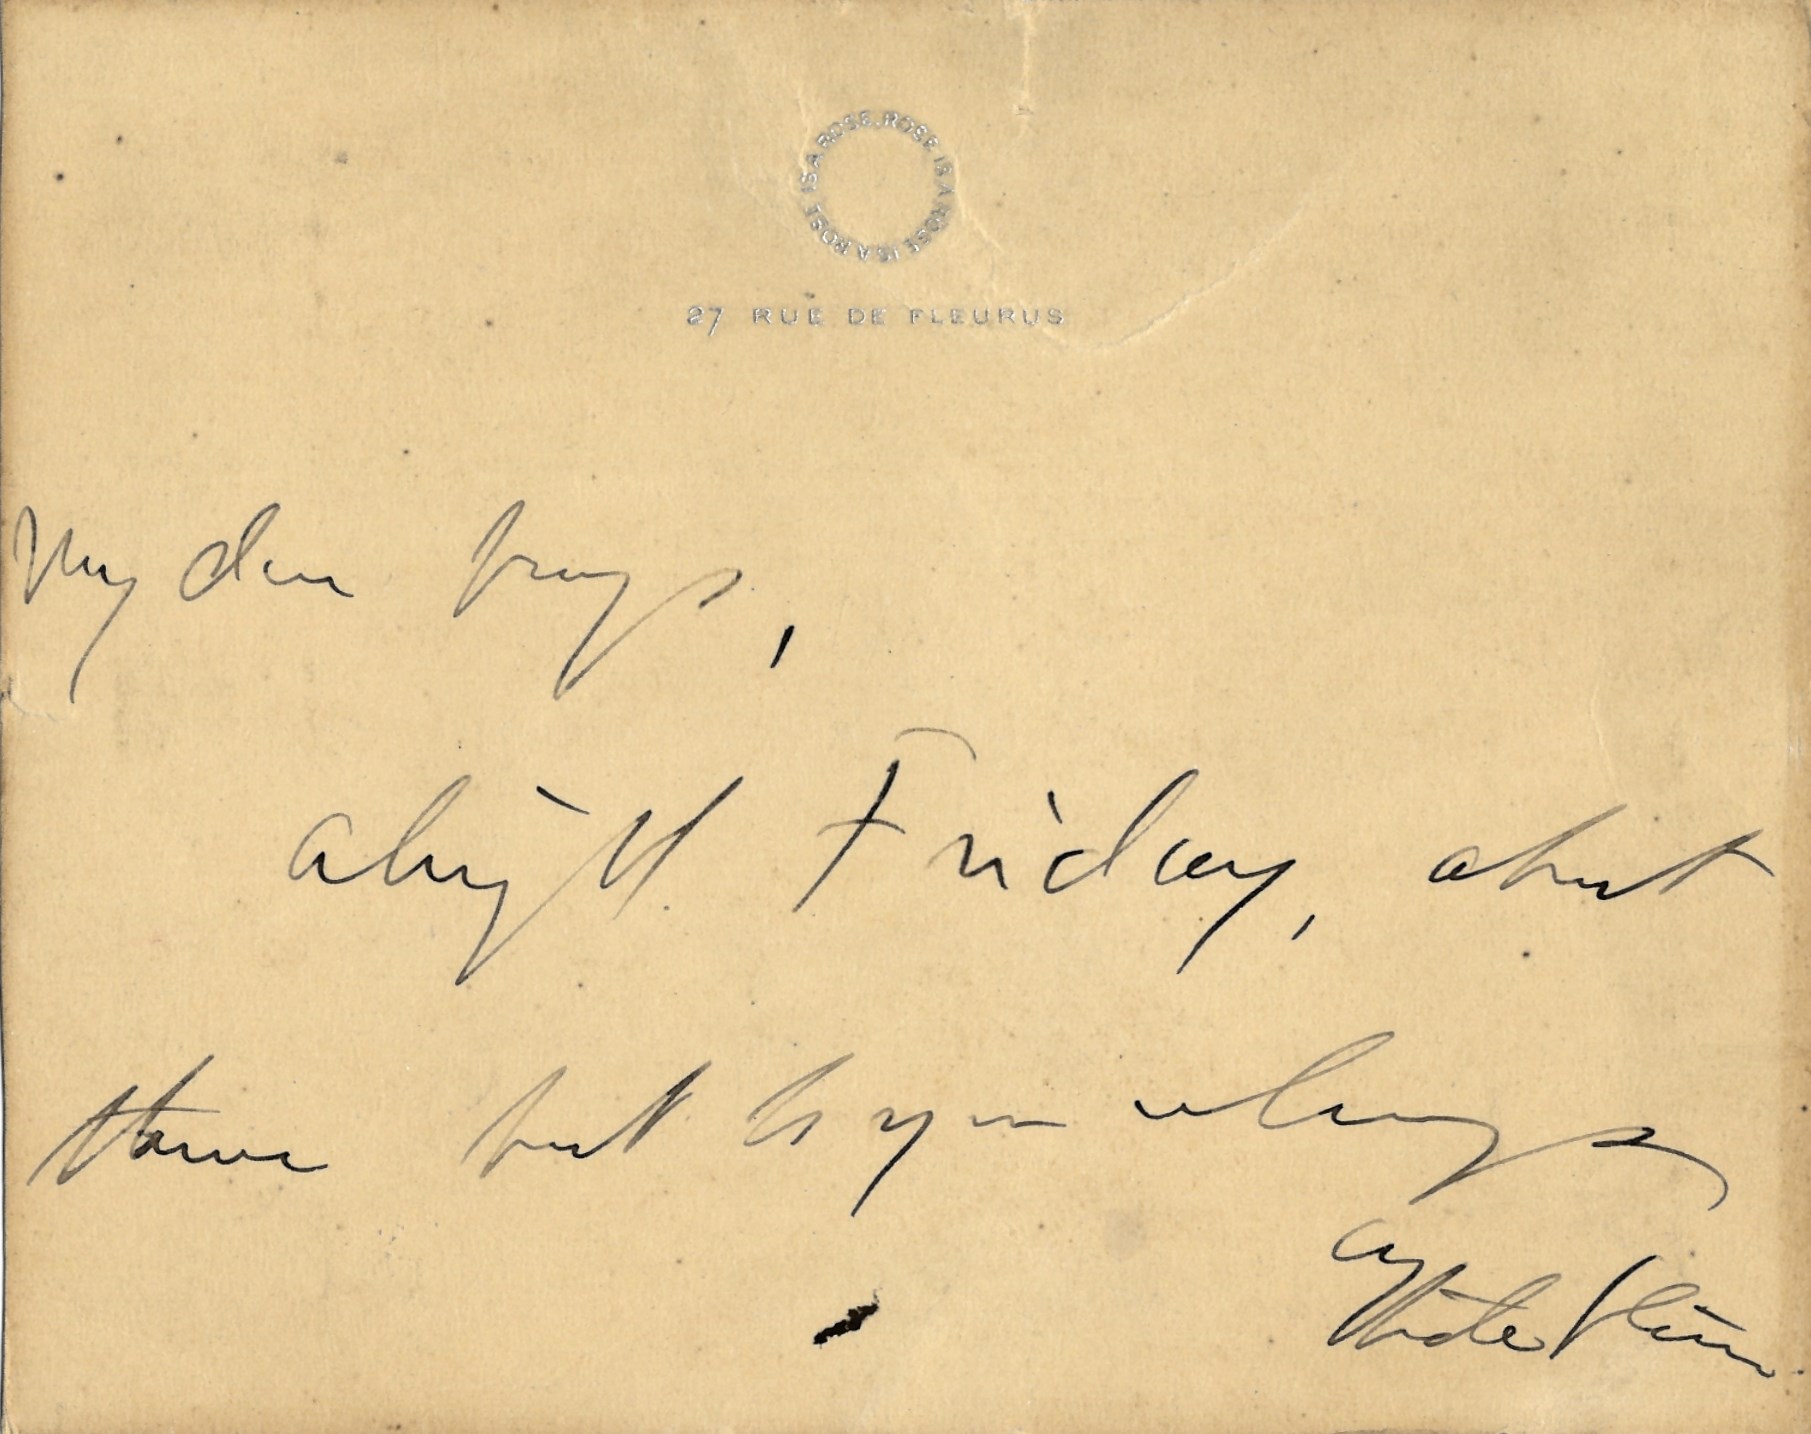 ROSE IS A ROSE IS A ROSE IS A ROSE.
27 RUE DE FLEURUS
My dear
alright Friday, about
but always
Gtrde Stein